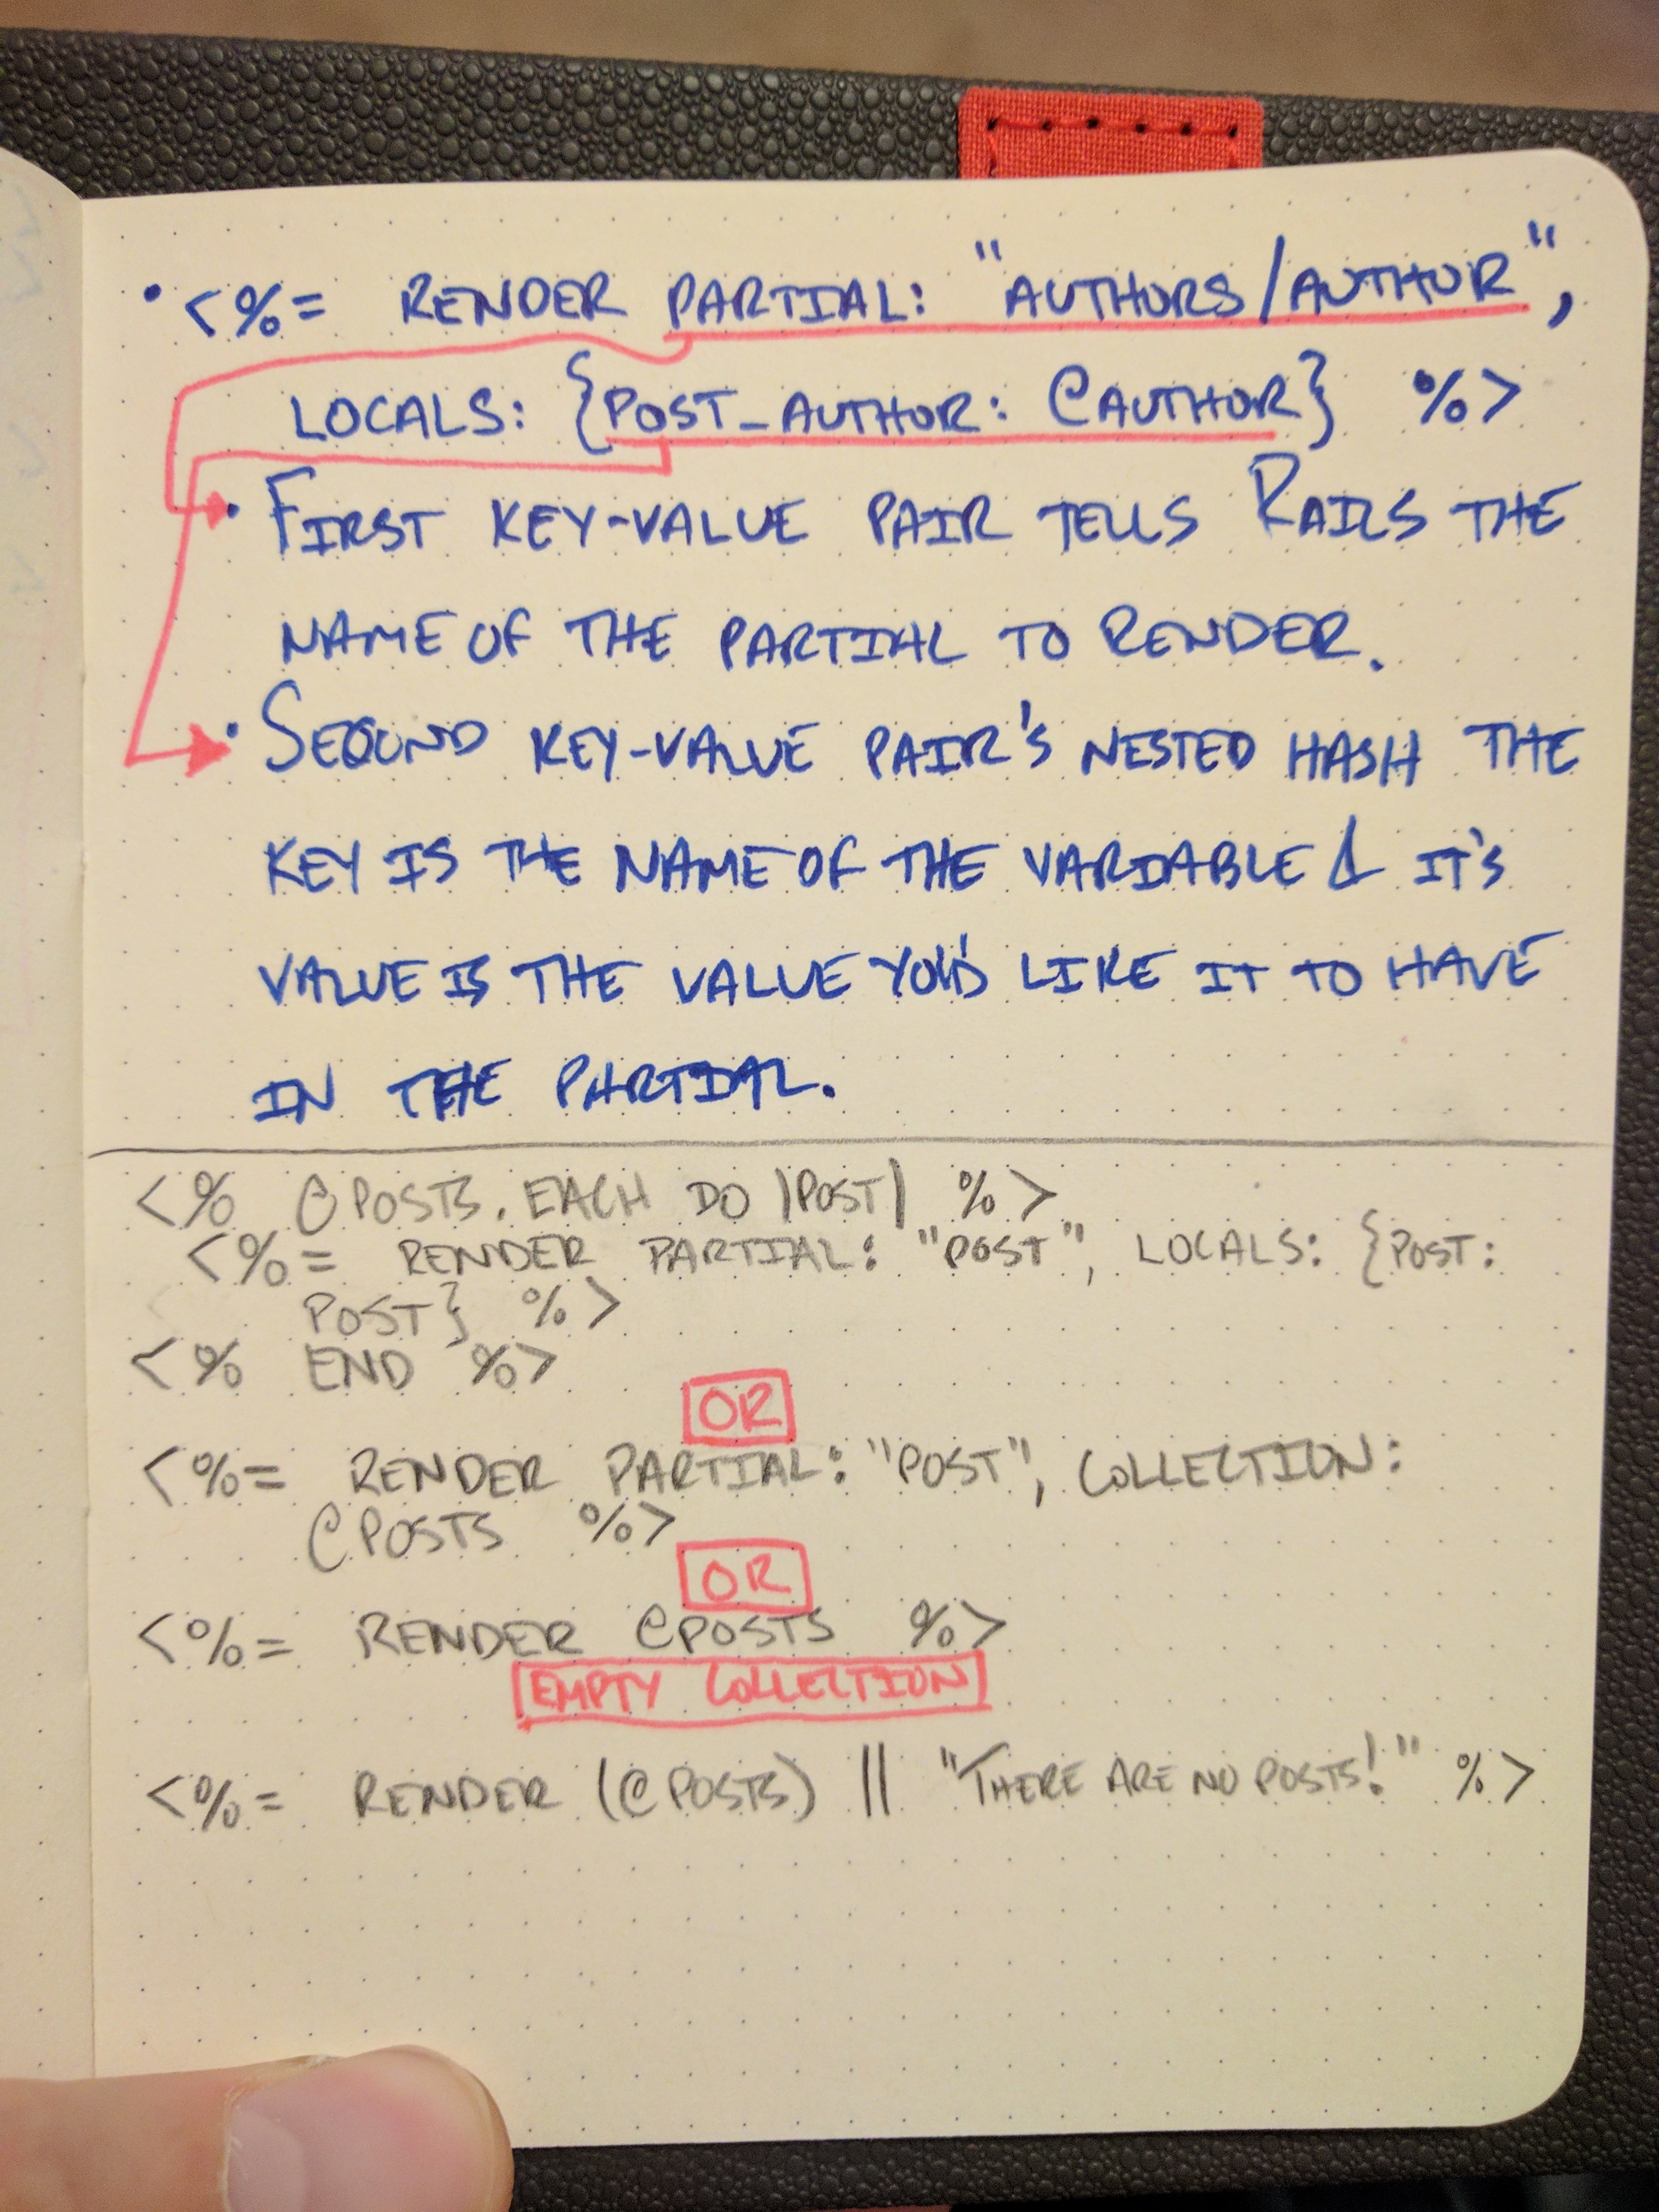 • <%= RENDER PARTIAL: "AUTHORS/AUTHOR",
LOCALS: {POST_AUTHOR: @AUTHOR} %>
• FIRST KEY-VALUE PAIR TELLS RAILS THE
NAME OF THE PARTIAL TO RENDER.
• SECOND KEY-VALUE PAIR'S NESTED HASH THE
KEY IS THE NAME OF THE VARIABLE & IT'S
VALUE IS THE VALUE YOU'D LIKE IT TO HAVE
IN THE PARTIAL.
<% @POSTS.EACH DO |POST| %>
<%= RENDER PARTIAL: "POST", LOCALS: {POST:
POST} %>
<% END %>
OR
<%= RENDER PARTIAL: "POST", COLLECTION:
@POSTS %>
OR
<%= RENDER @POSTS %>
EMPTY COLLECTION
<%= RENDER (@POSTS) || "THERE ARE NO POSTS!" %>